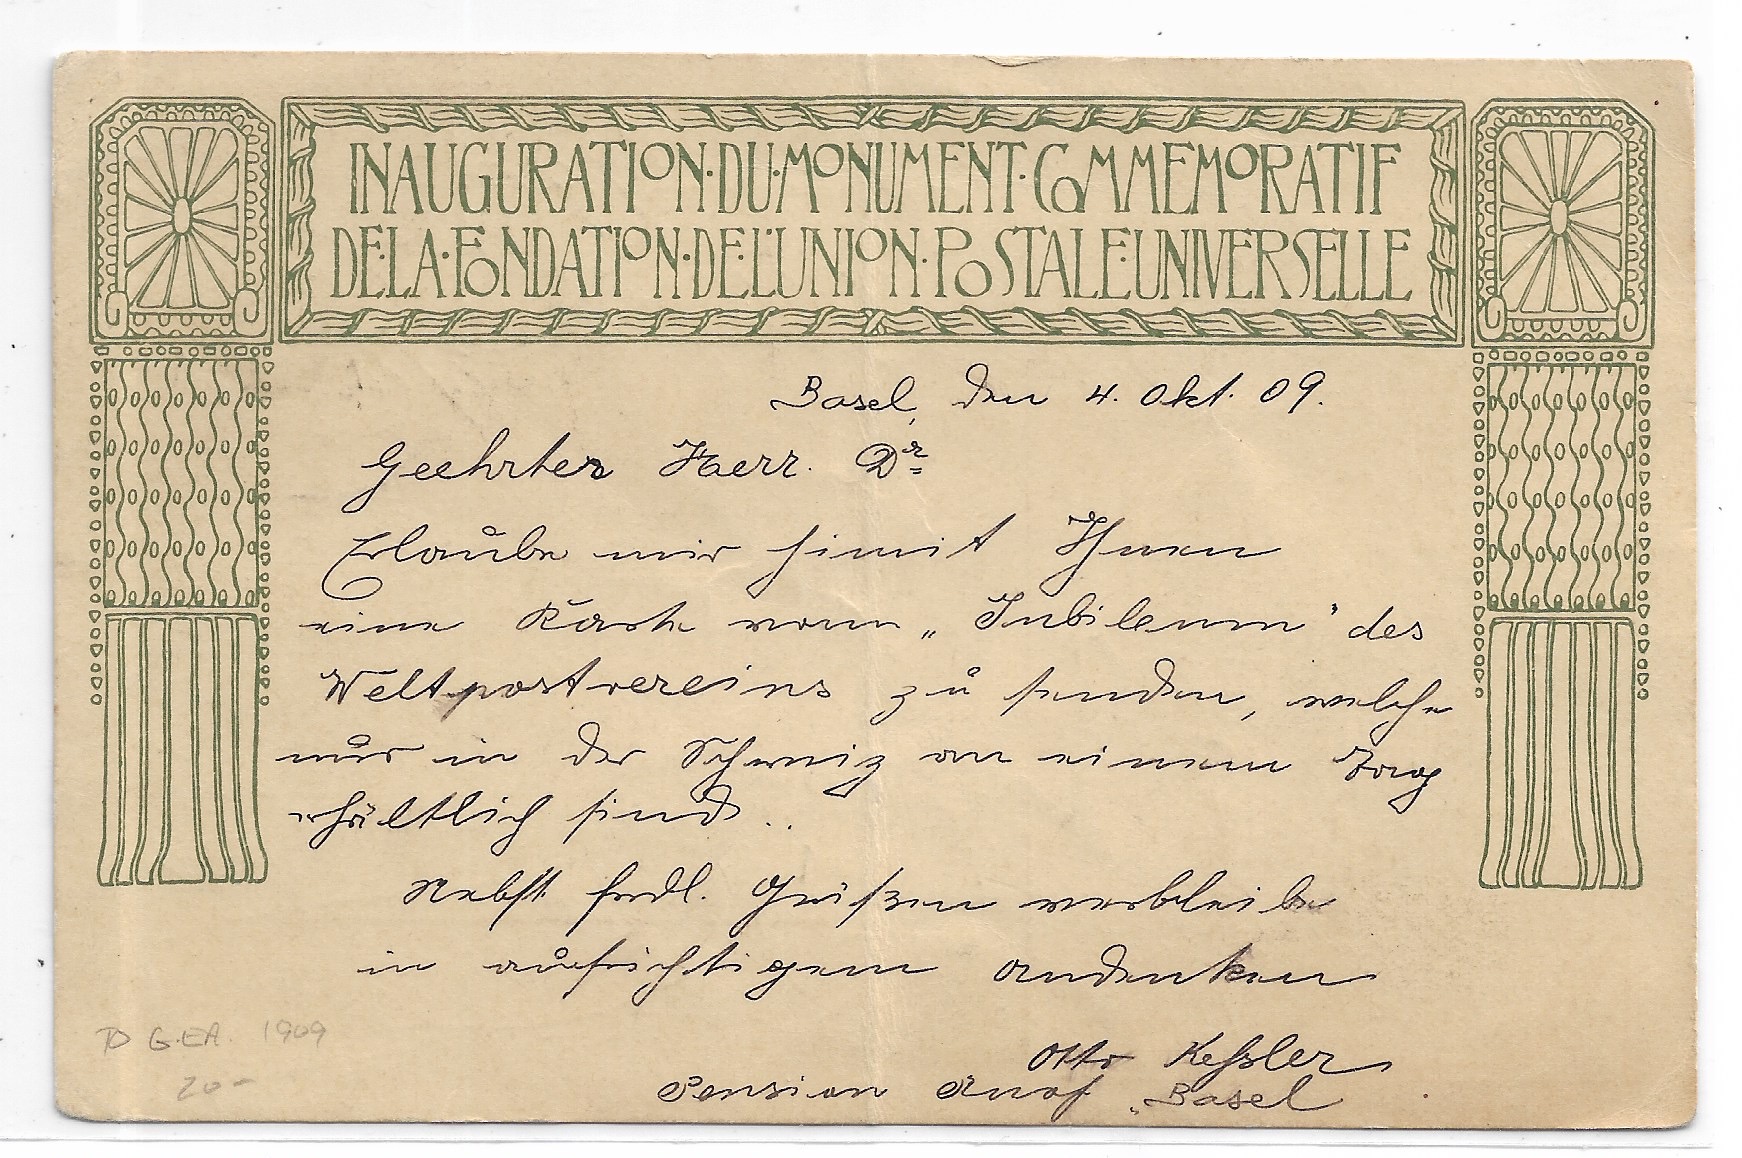 INAUGURATION·DU·MONUMENT·COMMEMORATIF
DE·LA·FONDATION·DE·L'UNION·POSTALE·UNIVERSELLE
Basel, den 4. Okt. 09.
Geehrter Herr. Dr
Erlaube mir himit Ihnen
eine Karte vom „Jubileum" des
Weltpostvereins zu senden, welche
nur in der Schweiz an einem Tag
erhältlich sind..
Nebst frdl. Grüßen verbleibe
in aufrichtigem Andenken
Otto Keßler
Pension Basel
TO G.EA. 1909
20-